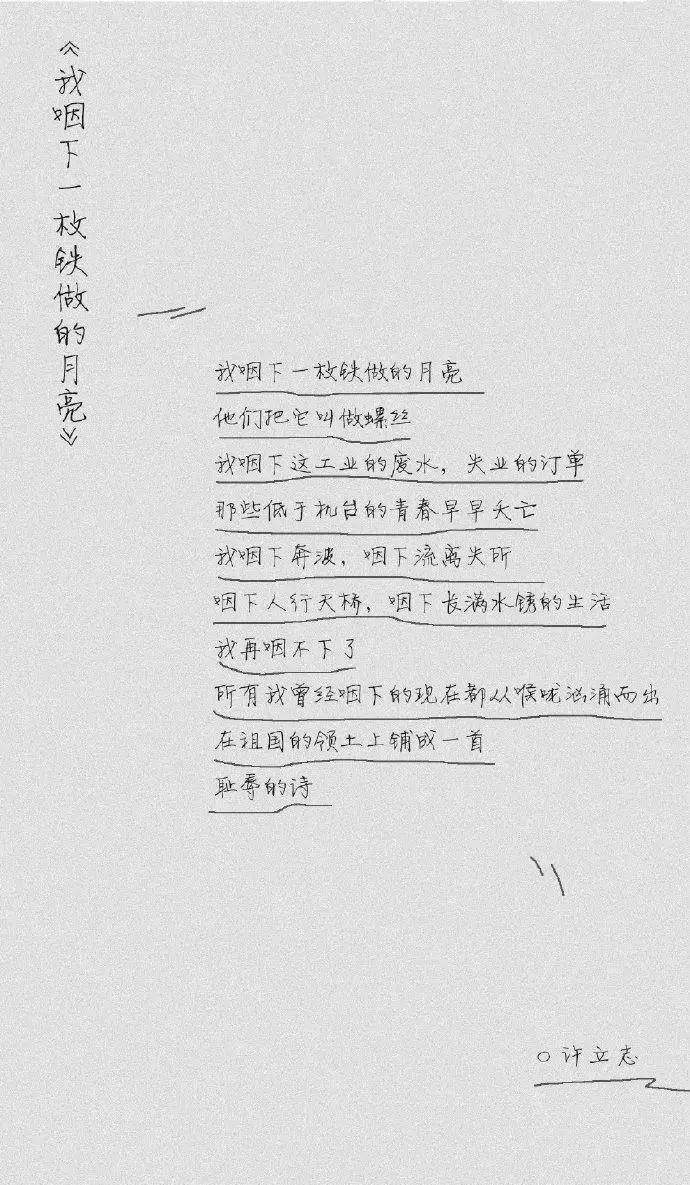 《我咽下一枚铁做的月亮》
我咽下一枚铁做的月亮
他们把它叫做螺丝
我咽下这工业的废水，失业的订单
那些低于机台的青春早早夭亡
我咽下奔波，咽下流离失所
咽下人行天桥，咽下长满水锈的生活
我再咽不下了
所有我曾经咽下的现在都从喉咙汹涌而出
在祖国的领土上铺成一首
耻辱的诗
○许立志